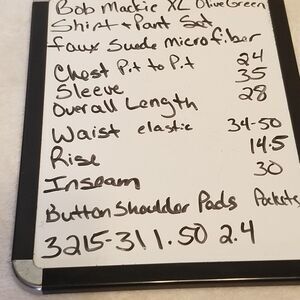 Bob Mackie XL Olive Green
Shirt + Pant Set
faux suede microfiber
Chest P.t to P.t 24
Sleeve 35
Overall Length 28
Waist elastic 34-50
Rise 14.5
Inseam 30
Button Shoulder Pads Pockets
3215-311.50 2.4